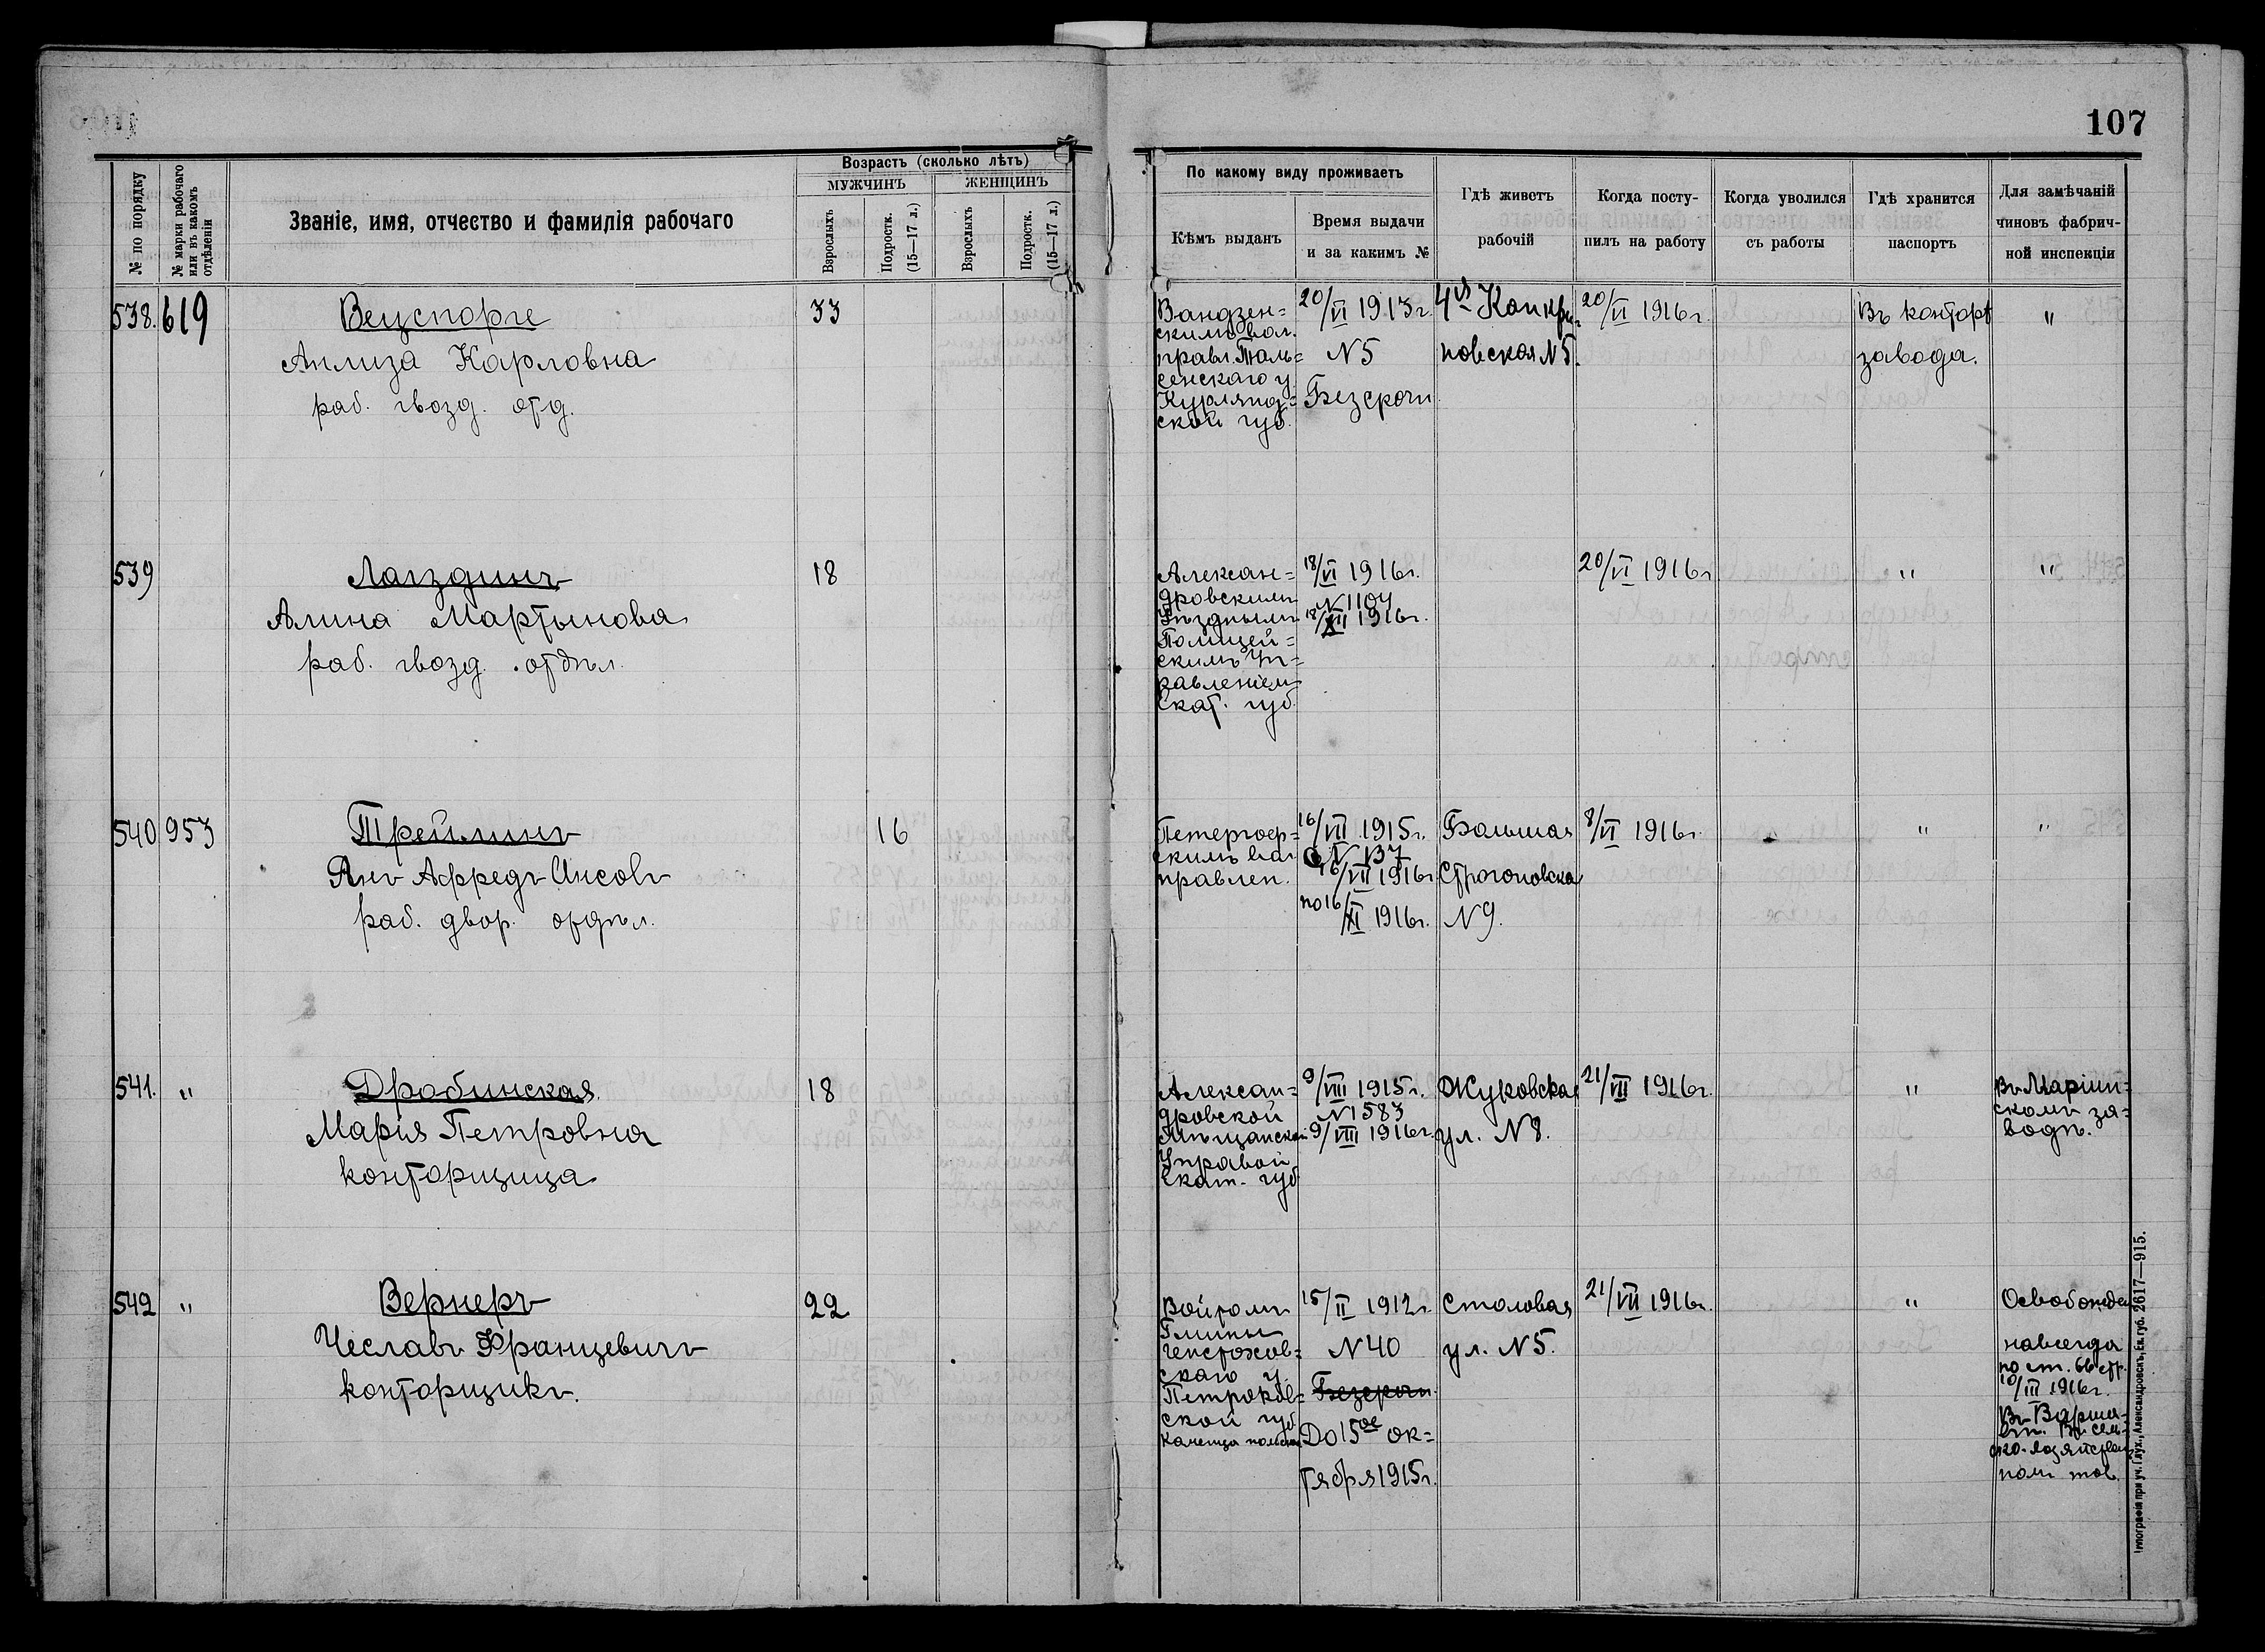 107
Возрастъ (сколько лѣтъ)
МУЖЧИНЪ
ЖЕНЩИНЪ
№ по порядку
№ марки рабочаго или въ какомъ отдѣленіи
Званіе, имя, отчество и фамилія рабочаго
Взрослыхъ
Подростк. (15—17 л.)
Взрослыхъ
Подростк. (15—17 л.)
По какому виду проживаетъ
Кѣмъ выданъ
Время выдачи
и за какимъ №
Гдѣ живетъ
рабочій
Когда посту-
пилъ на работу
Когда уволился
съ работы
Гдѣ хранится
паспортъ
Для замѣчаній
чиновъ фабрич-
ной инспекціи
538. 619
Вецспорге
Анлиза Карловна
раб. гвозд. отд.
33
Вандзен=
скимъ вол.
правл. Таль=
сенскаго у.
Курлянд=
ской губ.
20/VI 1913г.
N 5
Безсрочн
4ая Канкри-
новская N 5.
20/VI 1916г.
Въ конторѣ
завода.
"
539
Лагздинъ
Алина Мартынова
раб. гвозд. отдѣл.
18
Алексан=
дровскимъ
Уѣзднымъ
Полицей=
скимъ Уп=
равленіем
Екат. губ.
18/VI 1916г.
N 1104
18/XII 1916г.
20/VI 1916г
"
"
540 953
Трейлинъ
Янъ Афредъ Инсовъ
раб. двор. отдѣл.
16
Петергоф=
скимъ вол
правлен.
16/VII 1915г.
N 137
16/VII 1916г
по 16/
XI 1916г.
Большая
Строгоновская
N 9.
8/VI 1916г.
"
"
541. "
Дробинская
Марія Петровна
конторщица
18
Алексан=
дровской
Мѣщанской
Управой
Екат. губ
9/VIII 1915г.
N 1583
9/VIII 1916г.
Жуковская
ул. N 8.
21/VII 1916г.
"
Въ Маріин=
скомъ за=
водѣ.
542 "
Вернеръ
Чеславъ Францевичъ
конторщикъ.
22
Войтомъ
Гмины
Ченстохов=
скаго у.
Петроков=
ской губ
15/II 1912г
N 40
Безсрочн.
До 15ое ок=
тября 1915г.
Столовая
ул. N 5.
21/VII 1916г.
"
Освобожден
навсегда
по ст. 66 стр.
10/III 1916г.
Въ Варша-
тов.
Типографія при уч. Глух., Александровскъ, Ек. губ. 2617—915.